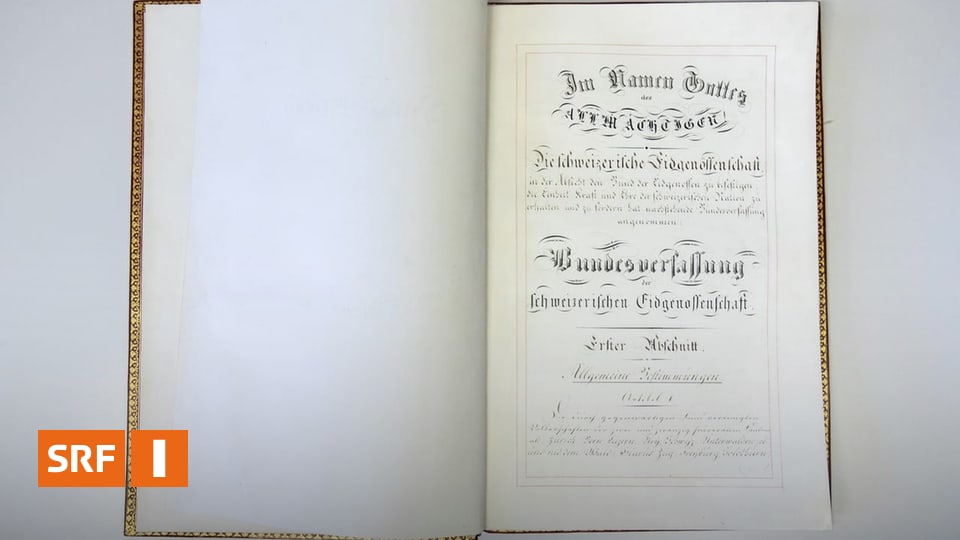 Im Namen Gottes
des
ALLMÄCHTIGEN!
Die schweizerische Eidgenossenschaft,
in der Absicht den Bund der Eidgenossen zu befestigen,
die Einheit Kraft und Ehre der schweizerischen Nation zu
erhalten und zu fördern hat nachstehende Bundesverfassung
angenommen:
Bundesverfassung
der
schweizerischen Eidgenossenschaft.
Erster Abschnitt.
Allgemeine Bestimmungen
Artikel 1
Die durch gegenwärtigen Bund vereinigten
Völkerschaften der zwei und zwanzig souveränen Kantone
als Zürich Bern Luzern Ury Schwyz Unterwalden ob
und nid dem Wald, Glarus Zug Freyburg Solothurn
SRF 1